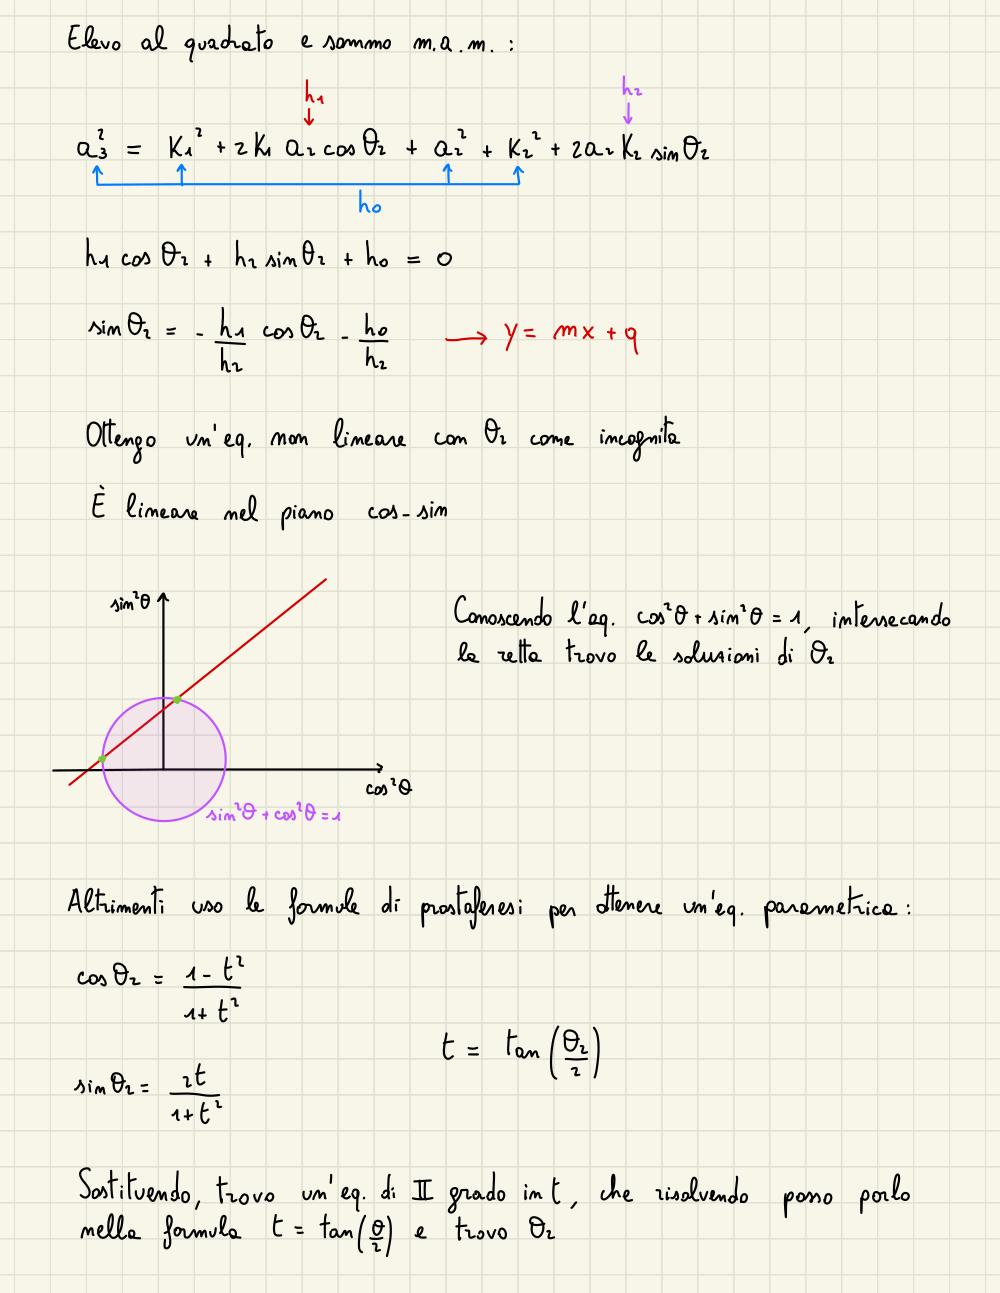 Elevo al quadrato e sommo m.a.m. :
h₁ h₂
a₃² = K₁² + 2 K₁ a₂ cos θ₂ + a₂² + K₂² + 2 a₂ K₂ sin θ₂
h₀
h₁ cos θ₂ + h₂ sin θ₂ + h₀ = 0
sin θ₂ = - h₁/h₂ cos θ₂ - h₀/h₂ → y = mx + q
Ottengo un'eq. non lineare con θ₂ come incognita
È lineare nel piano cos-sin
sin²θ
cos²θ
sin²θ + cos²θ = 1
Conoscendo l'eq. cos²θ + sin²θ = 1, intersecando
la retta trovo le soluzioni di θ₂
Altrimenti uso le formule di prostaferesi per ottenere un'eq. parametrica :
cos θ₂ = (1 - t²)/(1 + t²)
t = tan(θ₂/2)
sin θ₂ = 2t/(1 + t²)
Sostituendo, trovo un'eq. di II grado in t, che risolvendo posso porlo
nella formula t = tan(θ/2) e trovo θ₂